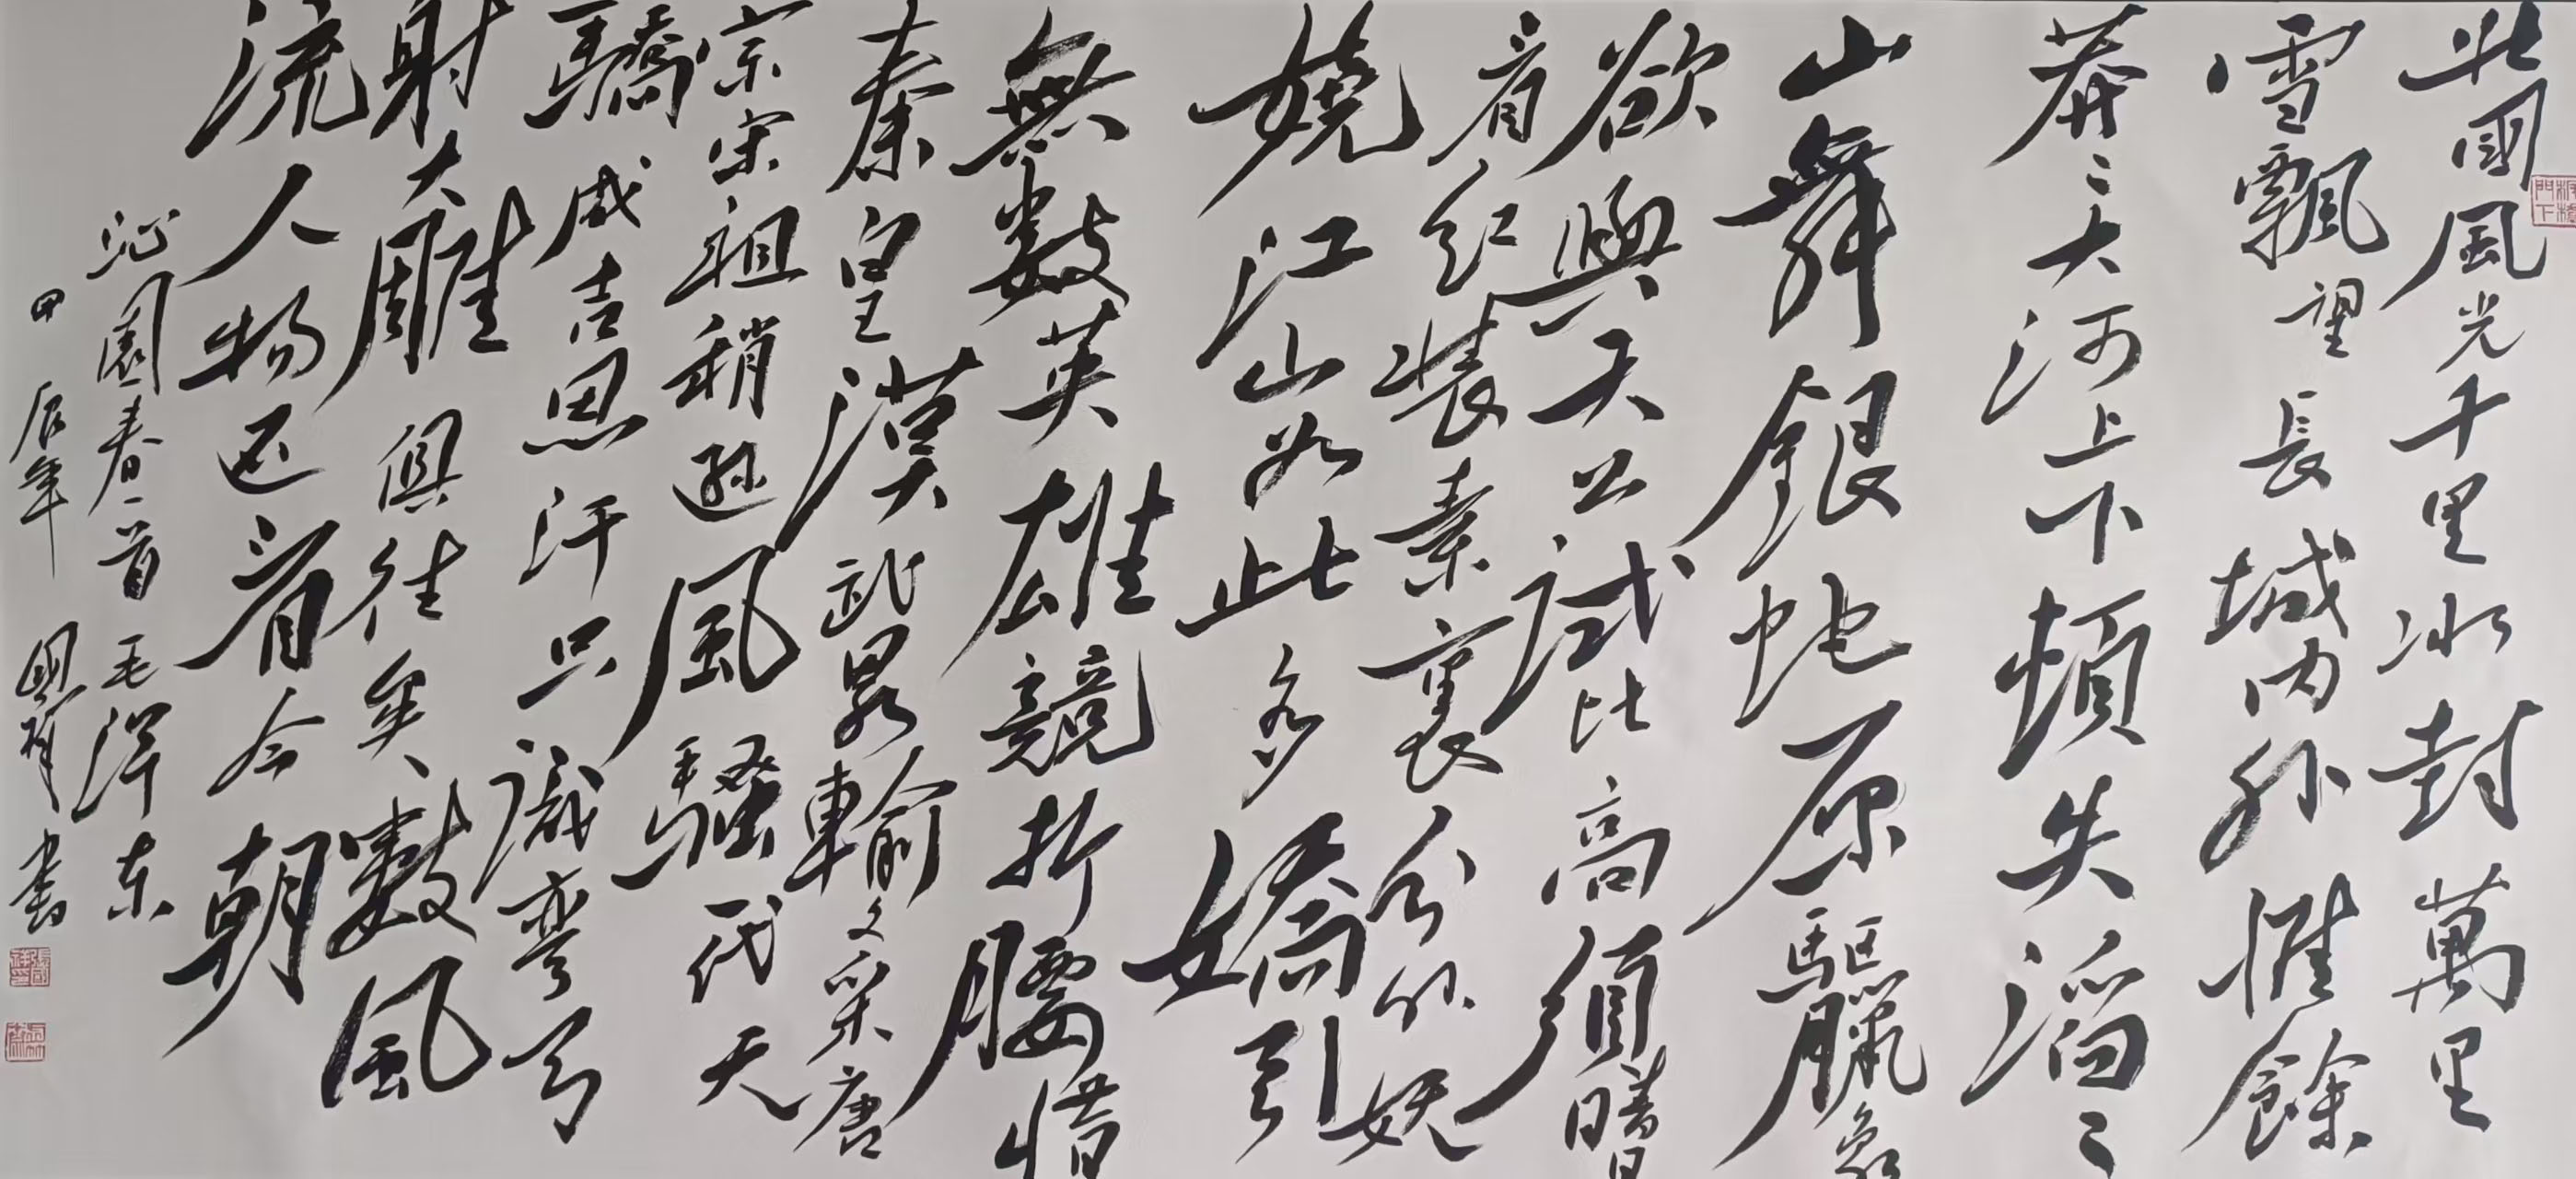 北國風光千里冰封萬里
雪飄望長城内外惟餘
莽〻大河上下頓失滔〻
山舞銀蛇原驅臘象
欲與天公試比高須晴日
看紅裝素裹分外妖
嬈江山如此多嬌引
無數英雄競折腰惜
秦皇漢武畧輸文采唐
宗宋祖稍遜風騷一代天
驕成吉思汗只識彎弓
射大雕俱往矣數風
流人物还看今朝
沁園春一首毛澤东
甲辰年國祥書